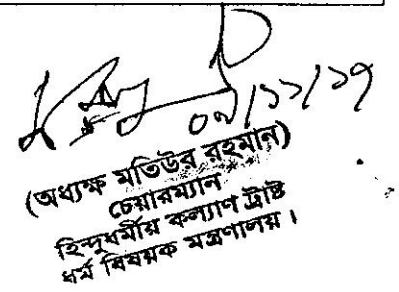 ০৭/১১/১৭
(অধ্যক্ষ মতিউর রহমান)
চেয়ারম্যান
হিন্দুধর্মীয় কল্যাণ ট্রাষ্ট
ধর্ম বিষয়ক মন্ত্রণালয়।